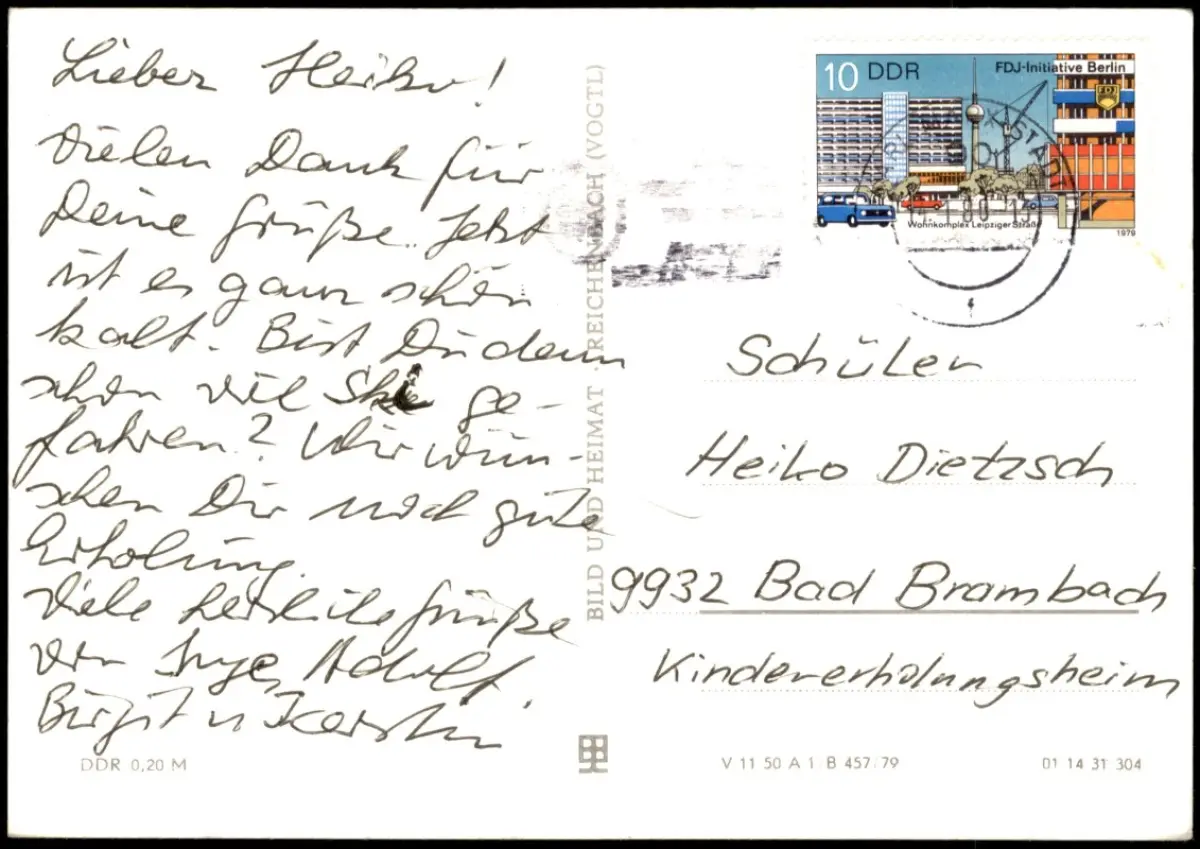 Lieber Heiko!
Vielen Dank für
Deine Grüße. Jetzt
ist es ganz schön
kalt. Bist Du denn
schon viel Ski ge-
fahren? Wir wün-
schen Dir noch gute
Erholung.
Viele herzliche Grüße
von Inge, Adolf,
Birgit u. Kerstin
DDR 0,20 M
BILD UND HEIMAT · REICHENBACH (VOGTL)
10 DDR
FDJ-Initiative Berlin
FDJ
Wohnkomplex Leipziger Straße
1979
Schüler
Heiko Dietzsch
9932 Bad Brambach
Kindererholungsheim
V 11 50 A 1/B 457/79
01 14 31 304